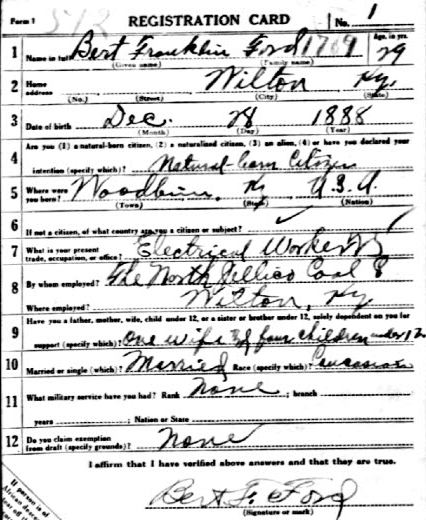 Form 1 512 REGISTRATION CARD No. 1
1 Name in full Bert Franklin Ford 1769 Age, in yrs. 29
(Given name) (Family name)
2 Home address Wilton Ky.
(No.) (Street) (City) (State)
3 Date of birth Dec. 28 1888
(Month) (Day) (Year)
Are you (1) a natural-born citizen, (2) a naturalized citizen, (3) an alien, (4) or have you declared your
4 intention (specify which)? Natural born Citizen
5 Where were you born? Woodbine, Ky U.S.A.
(Town) (State) (Nation)
6 If not a citizen, of what country are you a citizen or subject?
7 What is your present trade, occupation, or office? Electrical Worker
8 By whom employed? The North Jellico Coal
Where employed? Wilton, Ky
Have you a father, mother, wife, child under 12, or a sister or brother under 12, solely dependent on you for
9 support (specify which)? One wife & four children under 12
10 Married or single (which)? Married Race (specify which)? Caucasian
11 What military service have you had? Rank None ; branch
years ; Nation or State
12 Do you claim exemption from draft (specify grounds)? None
I affirm that I have verified above answers and that they are true.
Bert F. Ford
(Signature or mark)
If person is of
African